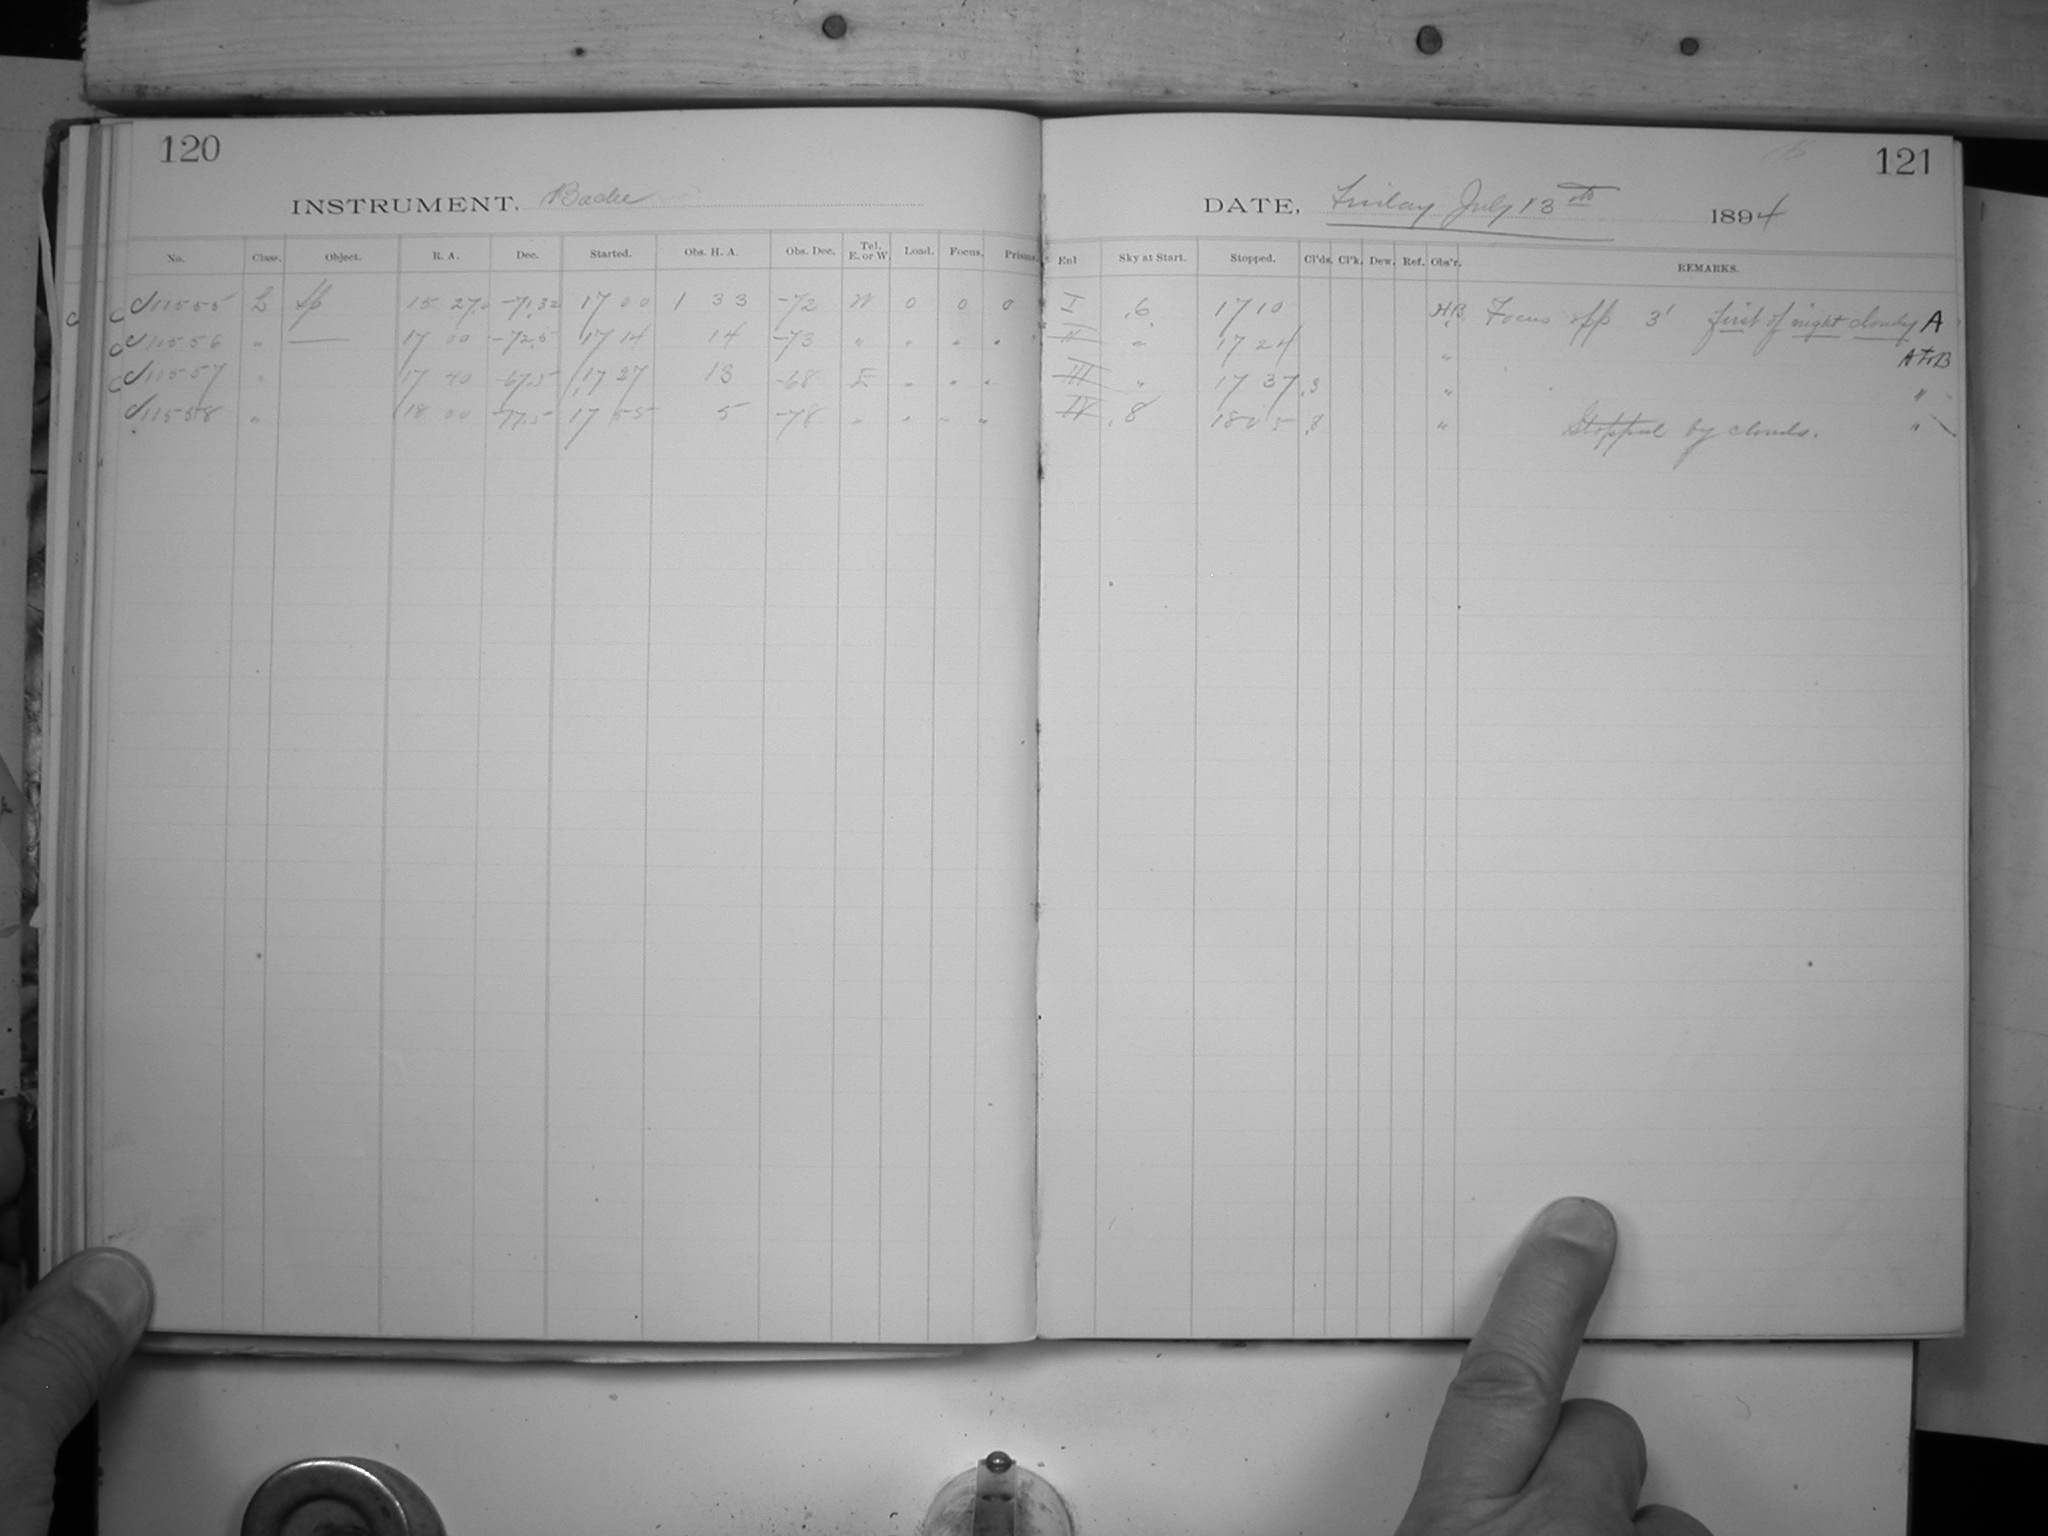 120
INSTRUMENT, Bache
No. Class. Object. R. A. Dec. Started. Obs. H. A. Obs. Dec. Tel. E. or W. Load. Focus. Prisms.
11555 L Sp 15 27. -71.32 17 00 1 33 -72 W 0 0 0
11556 " — 17 00 -72.5 17 14 14 -73 " " " "
11557 " 17 40 -67.5 17 27 13 -68 E " " "
11558 " 18 00 -77.5 17 55 5 -78 " " " "
121
DATE, Friday July 13th 1894
Exl Sky at Start. Stopped. Cl'ds. Cl'k. Dew. Ref. Obs'r. REMARKS.
I .6 17 10 HB. Focus opp 3' first of night cloudy A
II " 17 24 " A to B
III " 17 37 .3 " "
IV .8 18 05 .8 " Stopped by clouds. "